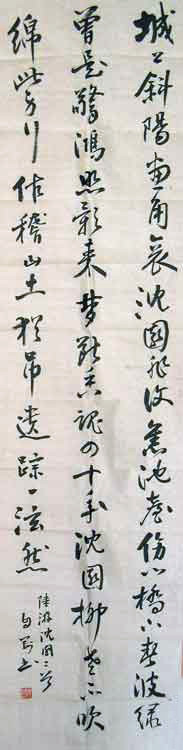 城上斜陽畫角哀沈園非復舊池臺傷心橋下春波綠
曾是驚鴻照影來梦斷香魂四十年沈園柳老不吹
綿此身行作稽山土猶吊遺踪一泫然
陸游沈園二首